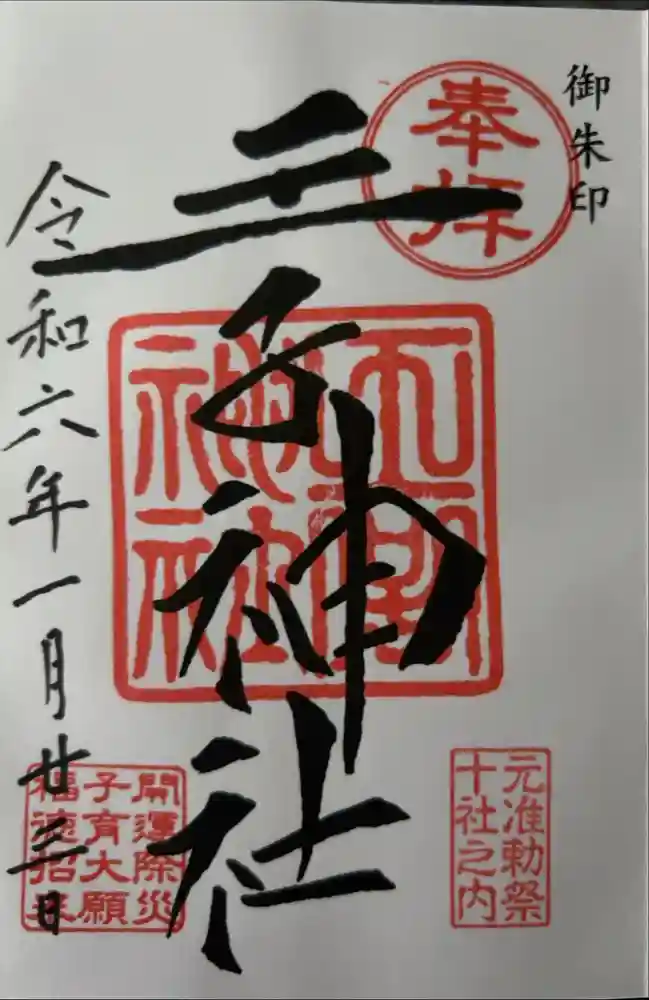 御朱印
奉拝
王子神社
令和六年一月廿三日
元准勅祭
十社之内
開運除災
子育大願
福徳招来